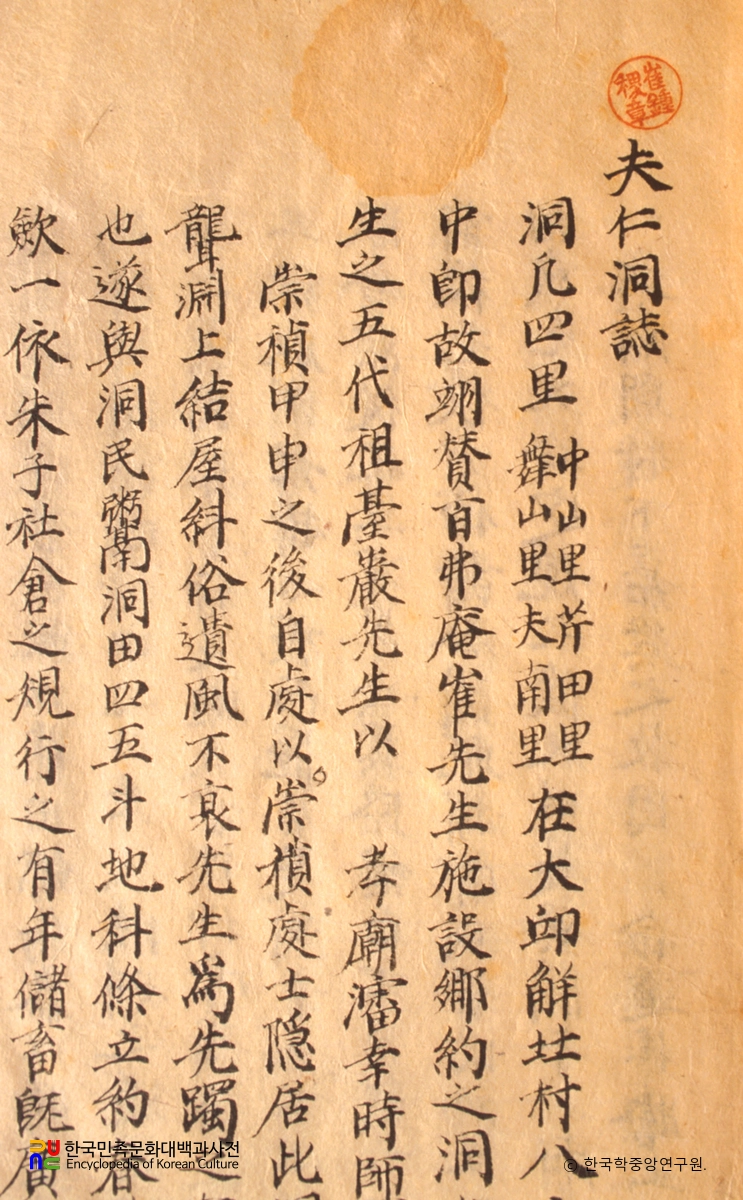 崔鍾稷章
夫仁洞誌
洞凡四里 中山里芹田里 舞山里夫南里 在大邱解北村八
中卽故翊贊百弗庵崔先生施設鄕約之洞
生之五代祖臺巖先生以 孝廟瀋幸時師
崇禎甲申之後自處以崇禎處士隱居此
聾淵上結屋糾俗遺風不衰先生爲先躅
也遂與洞民鬻洞田四五斗地科條立約春
歛一依朱子社倉之規行之有年儲畜旣廣
한국민족문화대백과사전
Encyclopedia of Korean Culture
© 한국학중앙연구원.